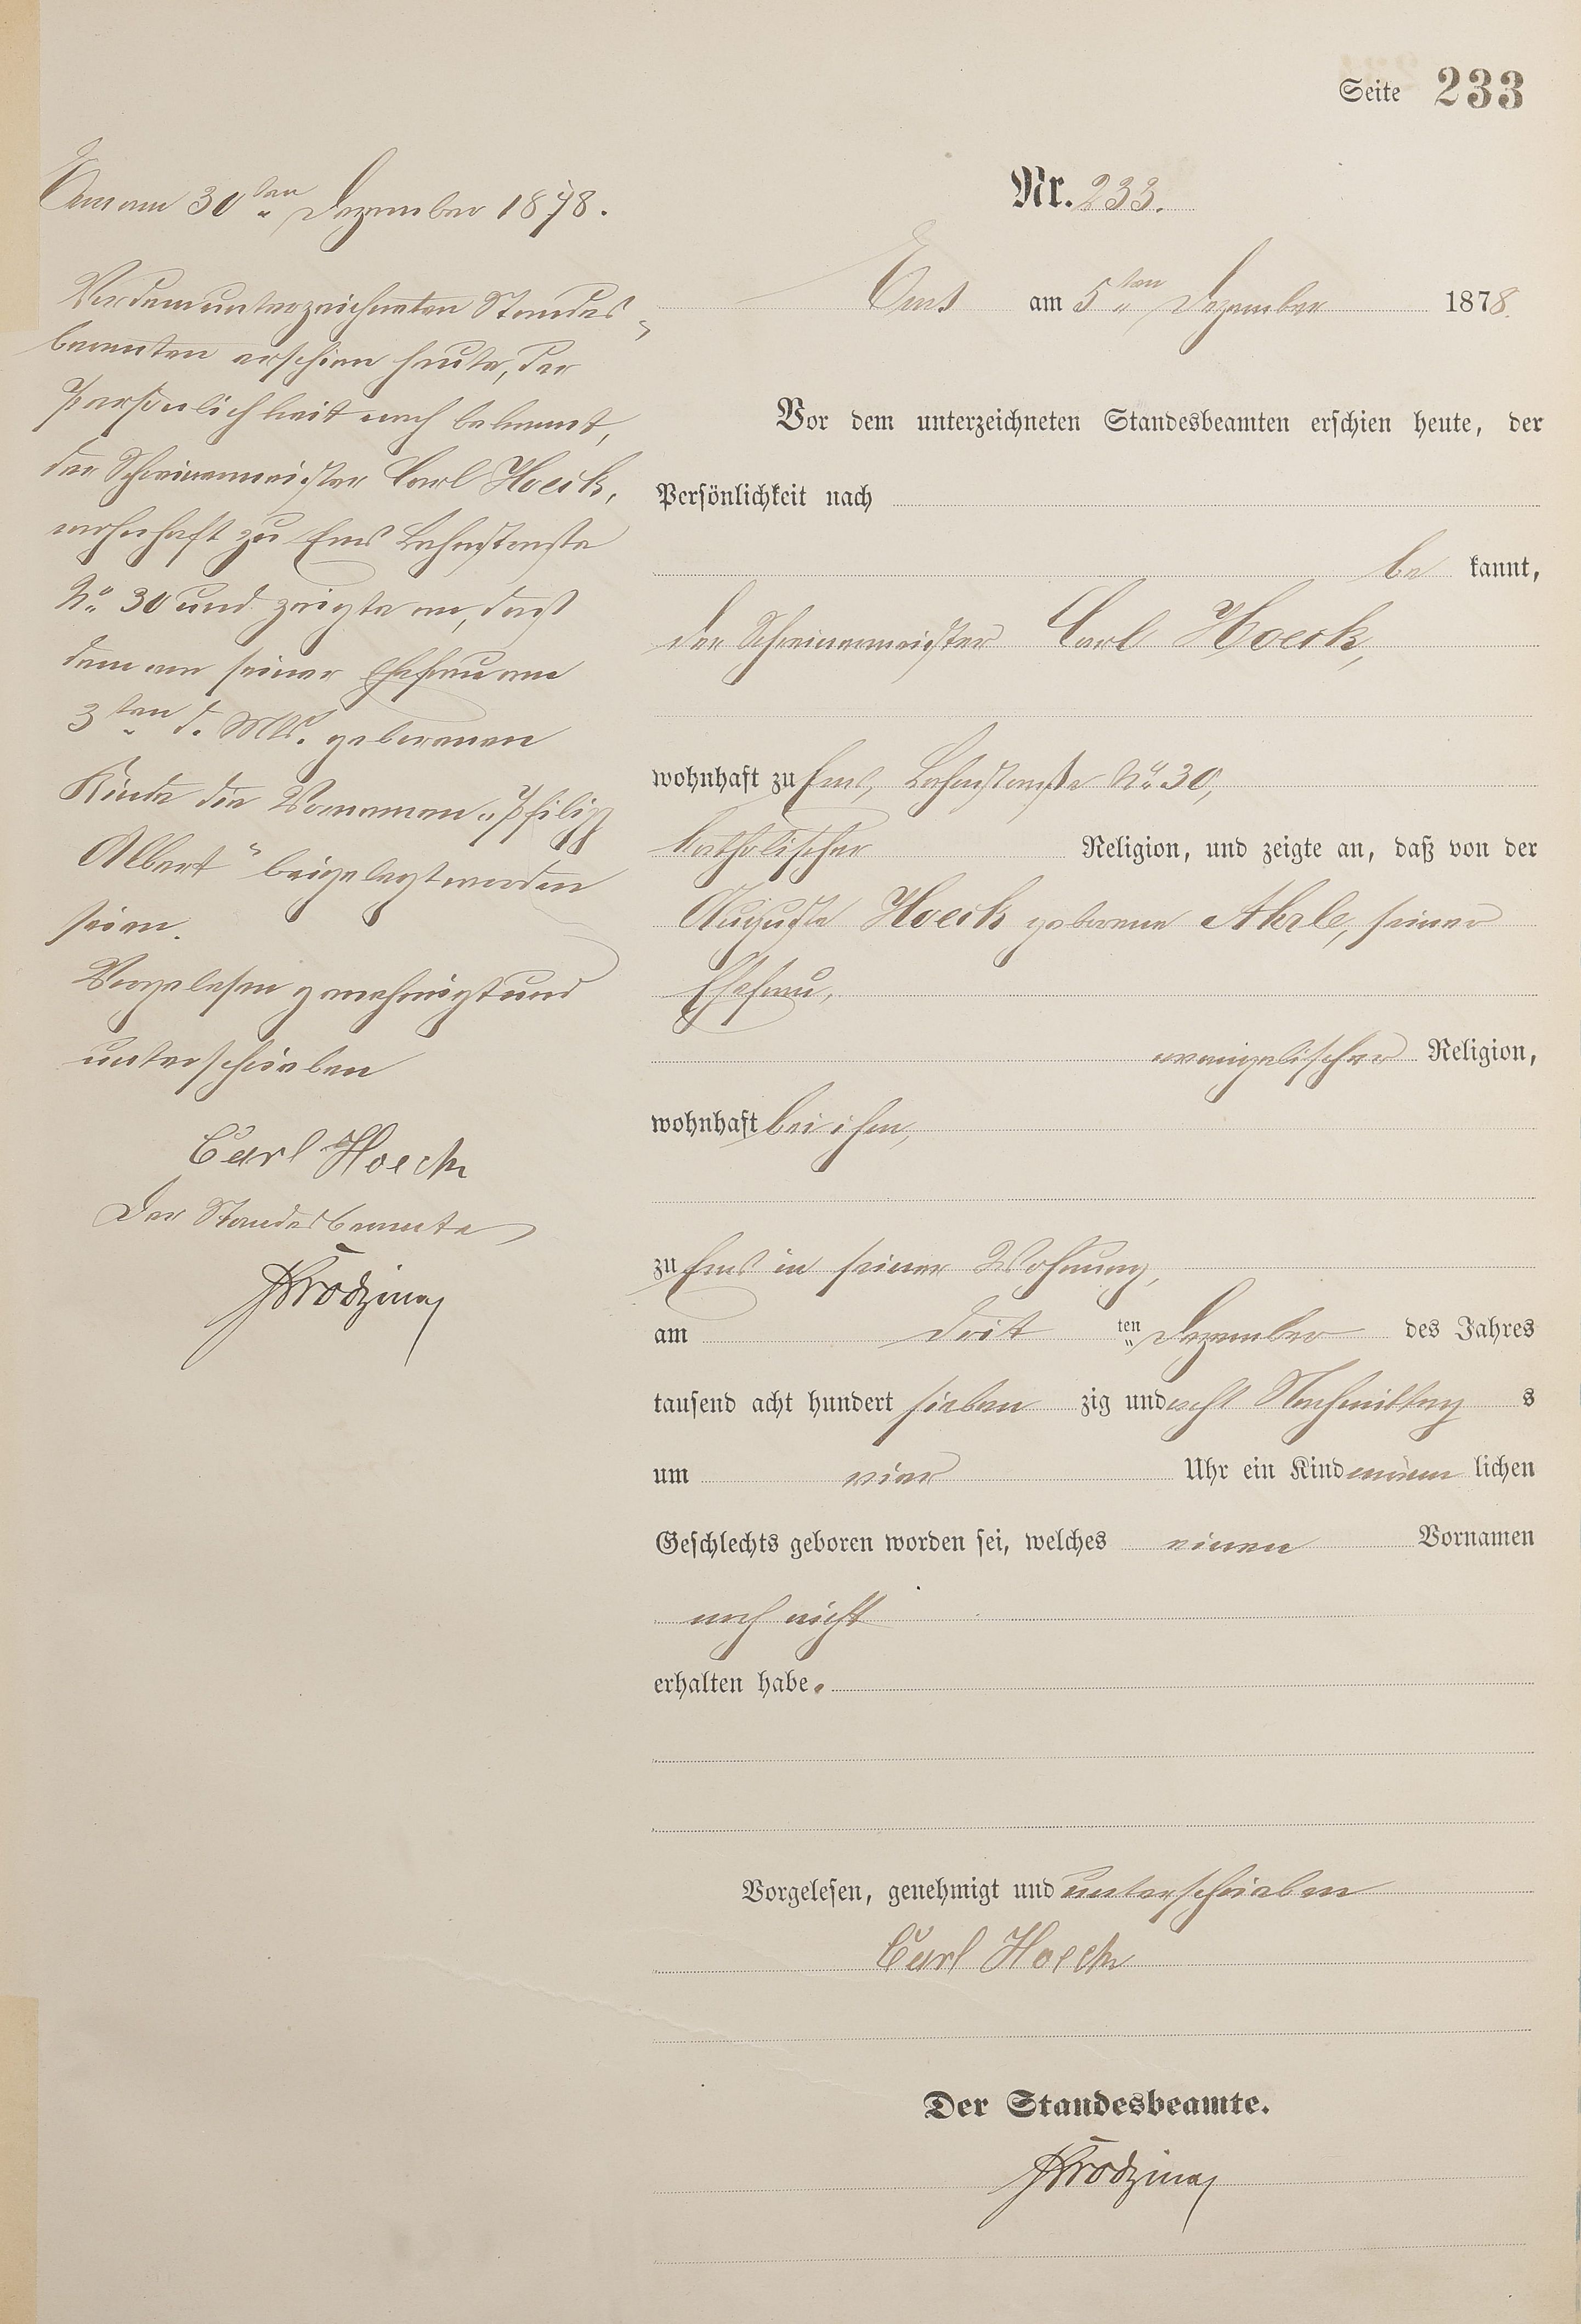 Seite 233
Ems am 30ten Dezember 1878.
Vor dem unterzeichneten Standes-
beamten erschien heute, der
Persönlichkeit nach bekannt,
der Schreinermeister Carl Hoeck,
wohnhaft zu Ems Lahnstraße
No 30 und zeigte an, daß
dem von seiner Ehefrau am
3ten d. Mts. geborenen
Kinde die Vornamen „Philipp
Albert“ beigelegt worden
seien.
Vorgelesen genehmigt und
unterschrieben
Carl Hoeck
Der Standesbeamte
Nr. 233.
Ems am 5ten Dezember 1878.
Vor dem unterzeichneten Standesbeamten erschien heute, der
Persönlichkeit nach
be kannt,
der Schreinermeister Carl Hoeck,
wohnhaft zu Ems, Lahnstraße No 30,
katholischer Religion, und zeigte an, daß von der
Auguste Hoeck geborene Ahrle, seiner
Ehefrau,
evangelischer Religion,
wohnhaft bei ihm,
zu Ems in seiner Wohnung,
am dritten Dezember des Jahres
tausend acht hundert sieben zig und acht Nachmittag s
um vier Uhr ein Kind männ lichen
Geschlechts geboren worden sei, welches einen Vornamen
noch nicht
erhalten habe.
Vorgelesen, genehmigt und unterschrieben
Carl Hoeck
Der Standesbeamte.